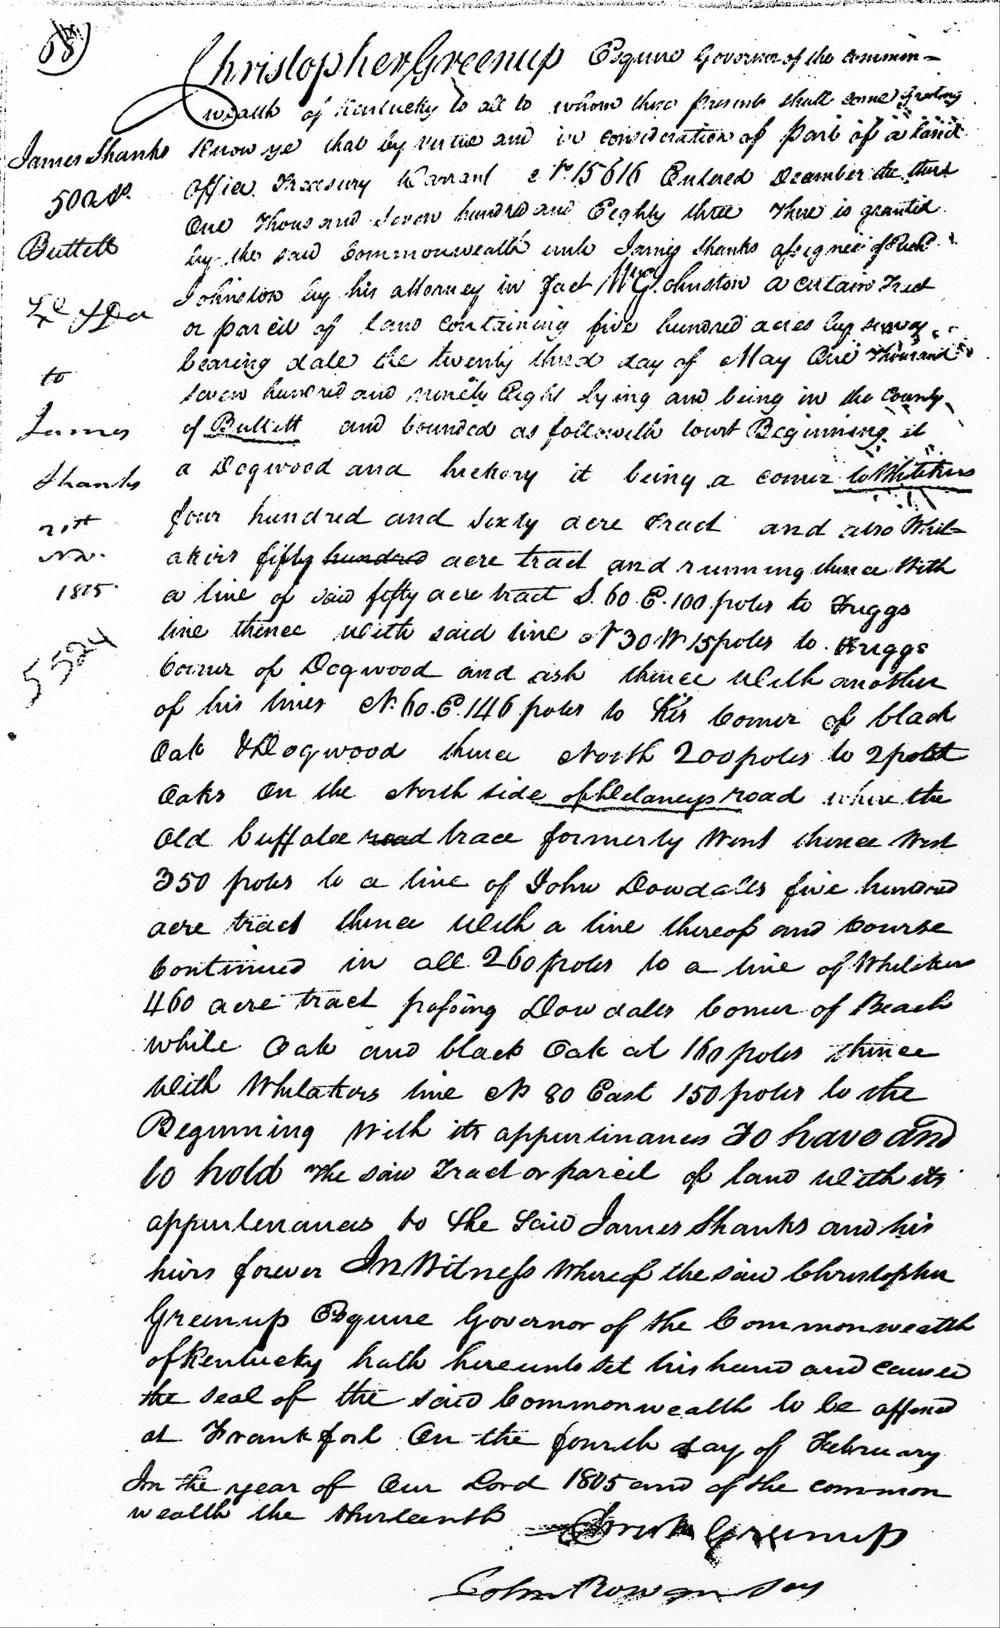 68
Christopher Greenup Esquire Governor of the common-
wealth of Kentucky to all to whom these presents shall come Greeting
Know ye that by virtue and in consideration of Part of a land
Office Treasury Warrant No 15616 Entered December the third
One Thousand Seven hundred and Eighty three There is granted
by the said Commonwealth unto James Shanks assignee of
Johnston by his attorney in fact Wm Johnston a certain Tract
or parcel of land containing five hundred acres by survey
bearing date the twenty third day of May One Thousand
seven hundred and ninety Eight lying and being in the County
of Bullett and bounded as followeth towit Beginning at
a Dogwood and hickory it being a corner to Whitakers
four hundred and sixty acre Tract and also Whit-
akers fifty hundred acre tract and running thence With
a line of said fifty acre tract S. 60 E. 100 poles to Friggs
line thence with said line N 30 W 15 poles to Friggs
Corner of Dogwood and ash thence with another
of his lines N. 60. E. 146 poles to his Corner of black
Oak & Dogwood thence North 200 poles to 2 post
Oaks on the North side of Delaneys road where the
old buffaloe road trace formerly Went thence West
350 poles to a line of John Dowdalls five hundred
acre tract thence with a line thereof and Course
Continued in all 260 poles to a line of Whitakers
460 acre tract passing Dowdalls Corner of Beach
while Oak and black Oak at 160 poles thence
with Whitakers line N 80 East 150 poles to the
Beginning With its appurtinances To have and
to hold the said Tract or parcel of land with its
appurtenances to the said James Shanks and his
heirs forever In Witness Whereof the said Christopher
Greenup Esquire Governor of the Commonwealth
of Kentucky hath hereunto set his hand and caused
the seal of the said Commonwealth to be affixed
at Frankfort On the fourth day of February
In the year of Our Lord 1805 and of the common
wealth the thirteenth
Christo Greenup
John Rowan Secy
James Shanks
500 As.
Bullett
to
James
Shanks
1805
5524